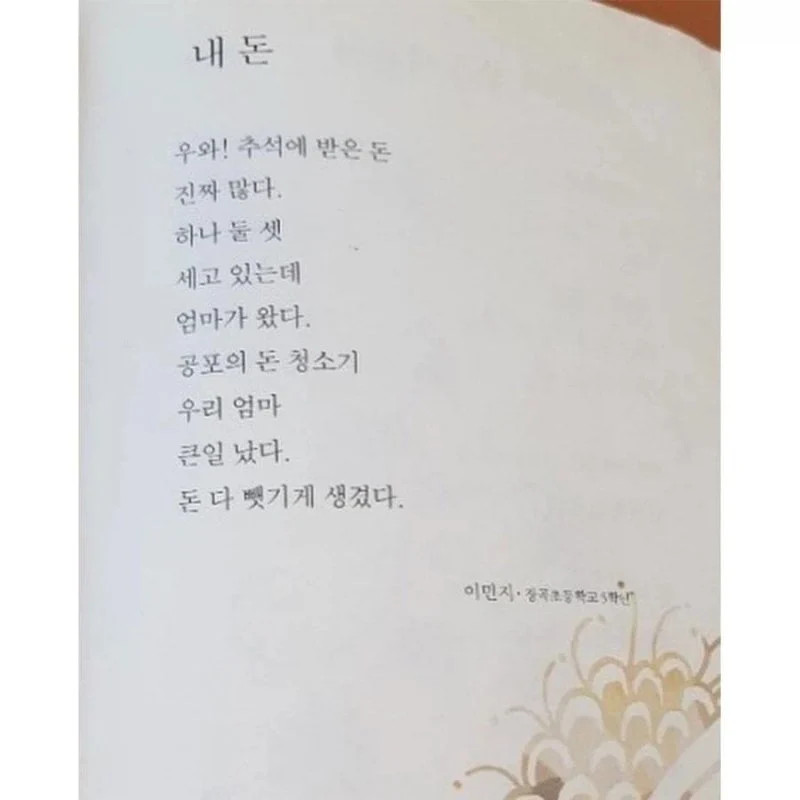 내 돈
우와! 추석에 받은 돈
진짜 많다.
하나 둘 셋
세고 있는데
엄마가 왔다.
공포의 돈 청소기
우리 엄마
큰일 났다.
돈 다 뺏기게 생겼다.
이민지 · 장곡초등학교 5학년